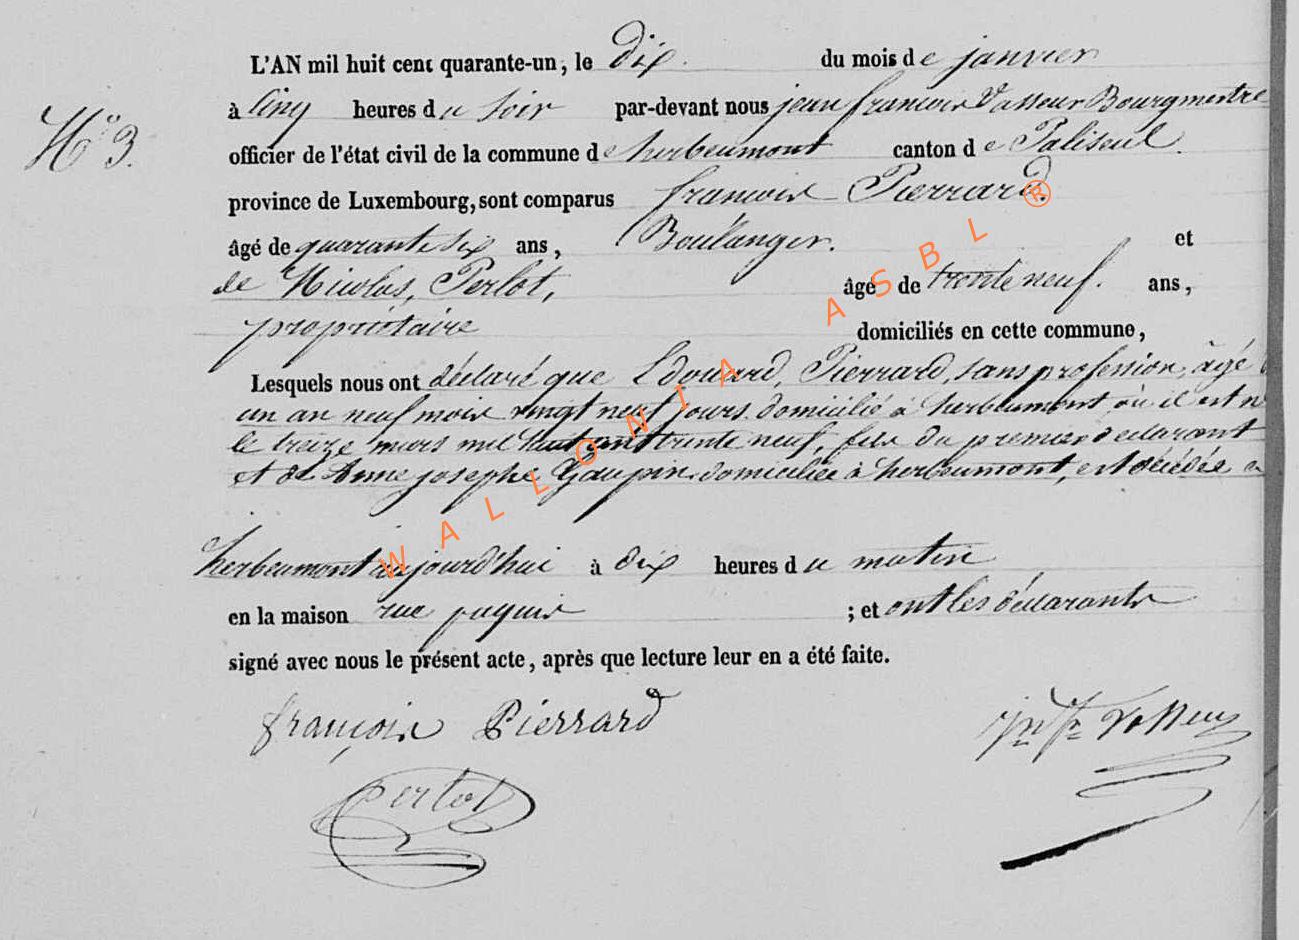 L'AN mil huit cent quarante-un, le Dix. du mois de janvier
à cinq heures du soir par-devant nous jean francois Vasseur Bourgmestre
N° 3.
officier de l'état civil de la commune de herbeumont canton de Paliseul.
province de Luxembourg, sont comparus francois Pierrard.
âgé de quarante six ans, Boulanger. et
de Nicolas, Perlot, âgé de trente neuf. ans,
propriétaire domiciliés en cette commune,
Lesquels nous ont déclaré que Edouard, Pierrard, sans profession, âgé
un an neuf mois vingt neuf jours domicilié à herbeumont, où il est
le treize mars mil huit cent trente neuf, fils du premier declarant
et de Anne josephe domiciliée à herbeumont, est décédée
herbeumont aujourd'hui à dix heures du matin
en la maison rue ; et ont les déclarants
signé avec nous le présent acte, après que lecture leur en a été faite.
françois Pierrard
Perlot
WALLONIA ASBL ®